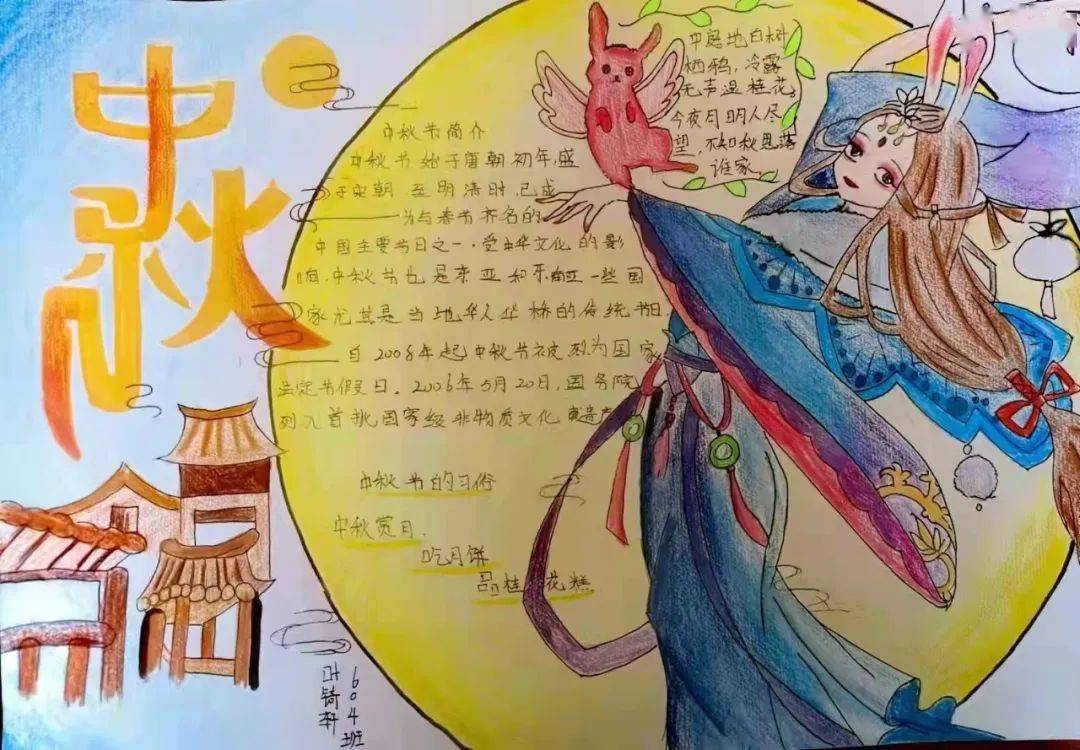 中秋
中秋节简介
中秋节始于唐朝初年,盛
于宋朝,至明清时,已成
为与春节齐名的
中国主要节日之一.受中华文化的影
响,中秋节也是东亚和东南亚一些国
家尤其是当地华人华侨的传统节日.
自2008年起中秋节被列为国家
法定节假日.2006年5月20日,国务院
列入首批国家级非物质文化遗产
中庭地白树
栖鸦,冷露
无声湿桂花,
今夜月明人尽
望,不知秋思落
谁家
中秋节的习俗
中秋赏月.
吃月饼
品桂花糕
604班
叶锜轩